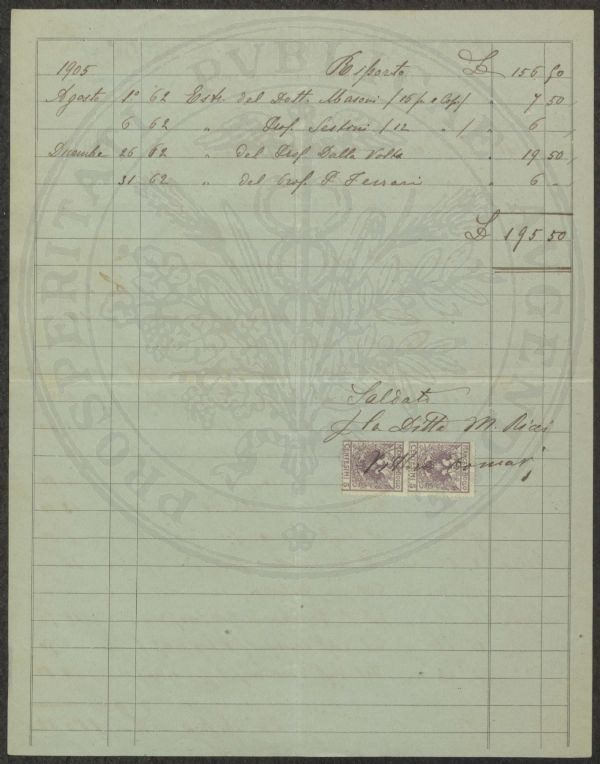 1905 Riporto L 156,50
Agosto 1° 62 Estr. del Dott. Masoni / 15 p. e Cop / " 7 50
6 62 " Prof. Sestini / 12 " / " 6 "
Dicembre 26 62 " del Prof Dalla Volta " 19 50
31 62 " del Prof. P Ferrari " 6 "
L 195 50
Saldato
p. la Ditta M. Ricci
PROSPERITAS PVBLICAE
CENTESIMI 5
CENTESIMI 5